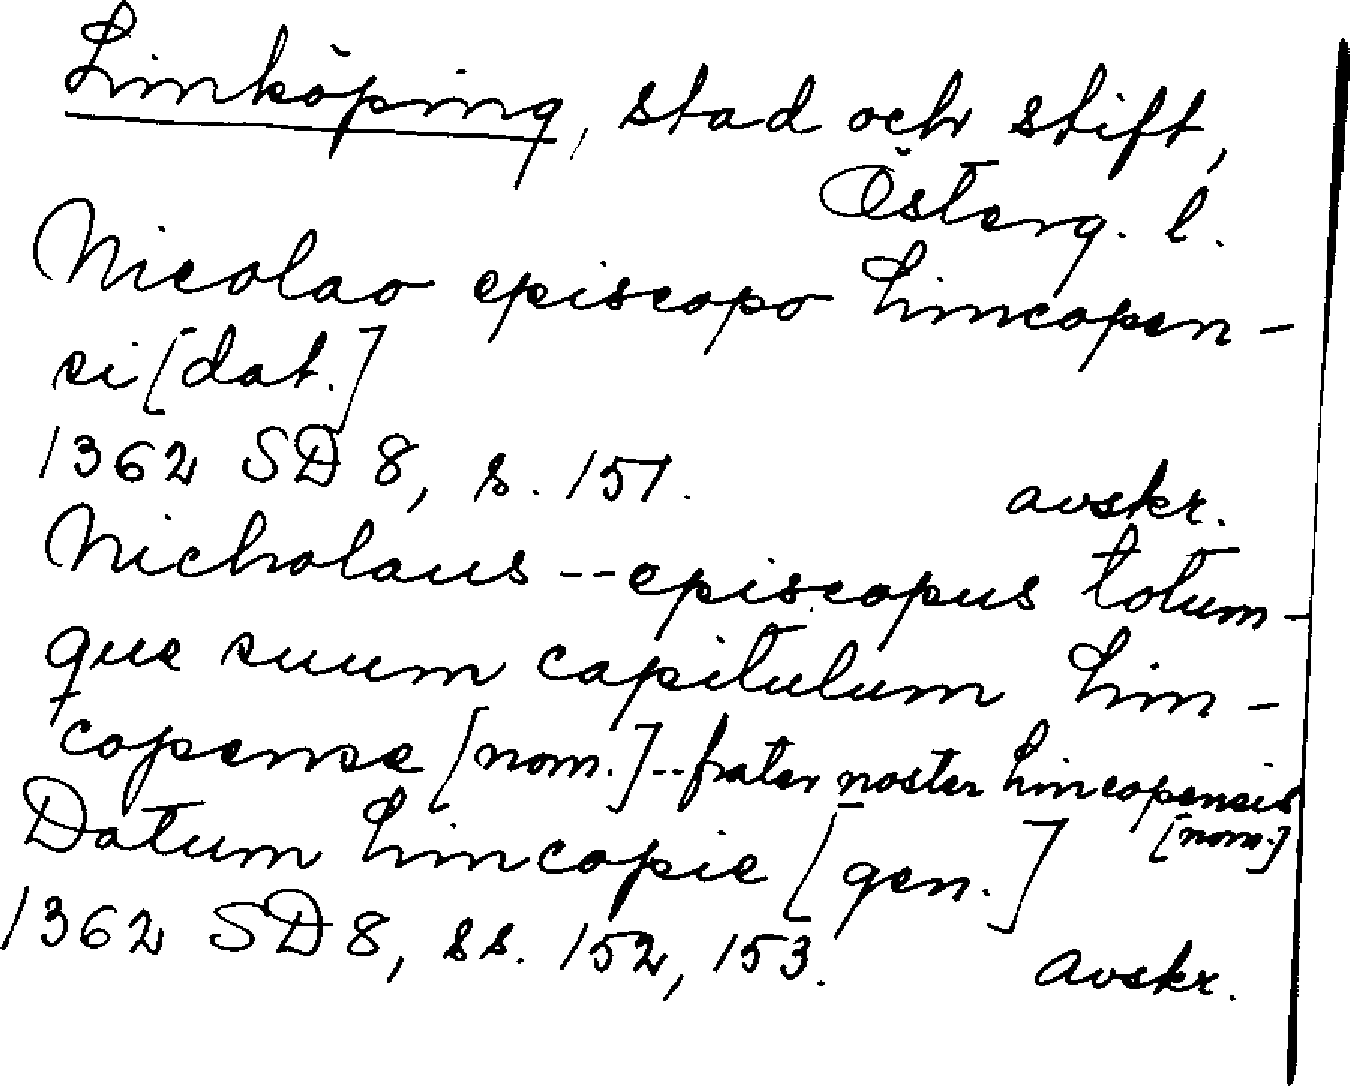 Linköping, stad och stift,
Österg. l.
Nicolao episcopo Lincopen-
si [dat.]
1362 SD 8, s. 151.
avskr.
Nicholaus -- episcopus totum-
que suum capitulum Lin-
copense [nom.] -- frater noster Lincopensis
[nom.]
Datum Lincopie [gen.]
1362 SD 8, ss. 152, 153.
avskr.